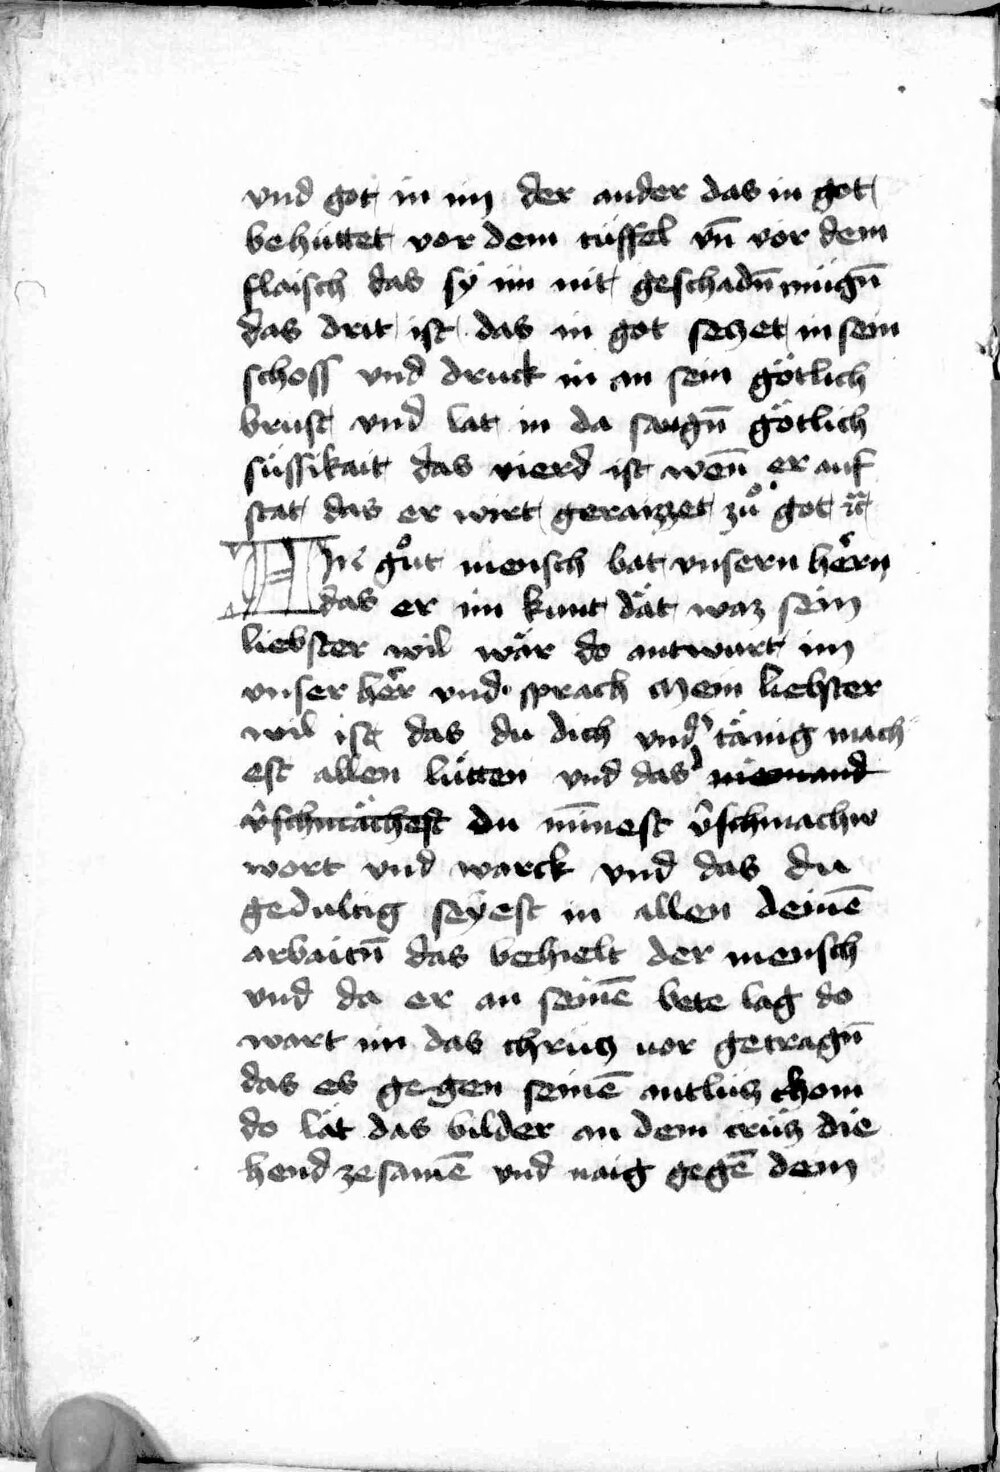 vnd got in im der ander das in got
behüttet vor dem tüffel vn̄ vor dem
flaisch das sÿ im nit geschadn̄ mügn̄
das drit ist das in got seczet in sein
schoss vnd druck in an sein götlich
brust vnd lat in da saugn̄ götlich
süssikait das vierd ist wen̄ er auf
stat das er wirt geraizzet zuͦ got ꝛc̄
AIn guͦt mensch bat vnsern hern
das er im kunt dät waz sein
liebster wil wär do antwurt im
vnser her vnd sprach Mein liebster
wil ist das du dich vnd͛tänig mach
est allen lütten vnd das niemand
v̂schmächest du nīmest v̂schmachw
wort vnd warck vnd das du
gedultig seÿest in allen deinē
arbaitn̄ das behielt der mensch
vnd da er an seinē bete lag do
wart im das chrücz vor getragn̄
das es gegen seinē antlücz chom
do lät das bilder an dem crücz die
hend zesamē vnd naig gegē dem